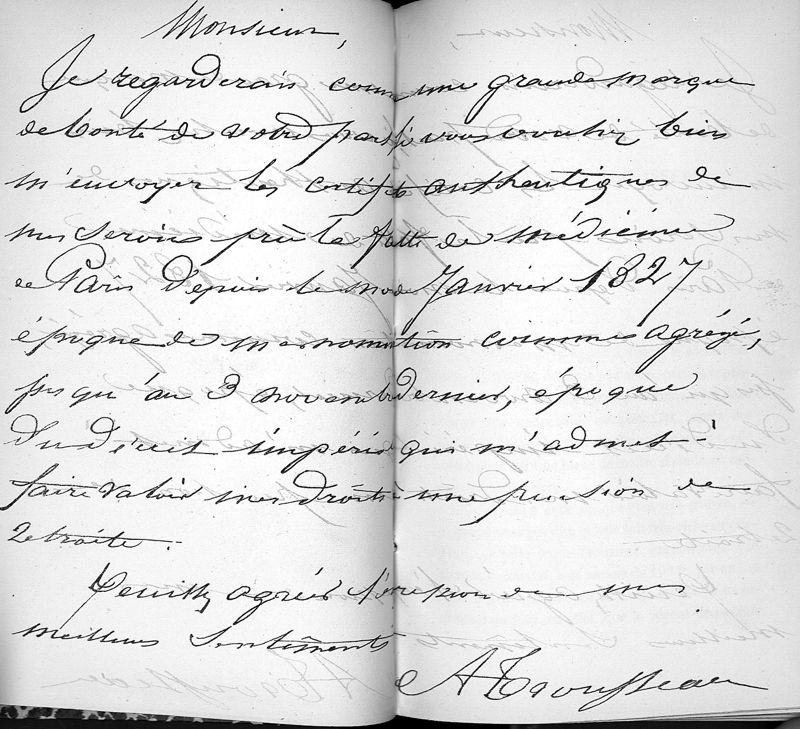 Monsieur,
Je regarderais comme une grande marque
de bonté de votre part si vous vouliez bien
m'envoyer les certificats authentiques de
mes services près la faculté de médecine
de Paris depuis le mois de Janvier 1827
époque de ma nomination comme agrégé,
jusqu'au 3 novembre dernier, époque
du décret impérial qui m'admet à
faire valoir mes droits à une pension de
retraite.
Veuillez agréer l'expression de mes
meilleurs sentiments
A Trousseau